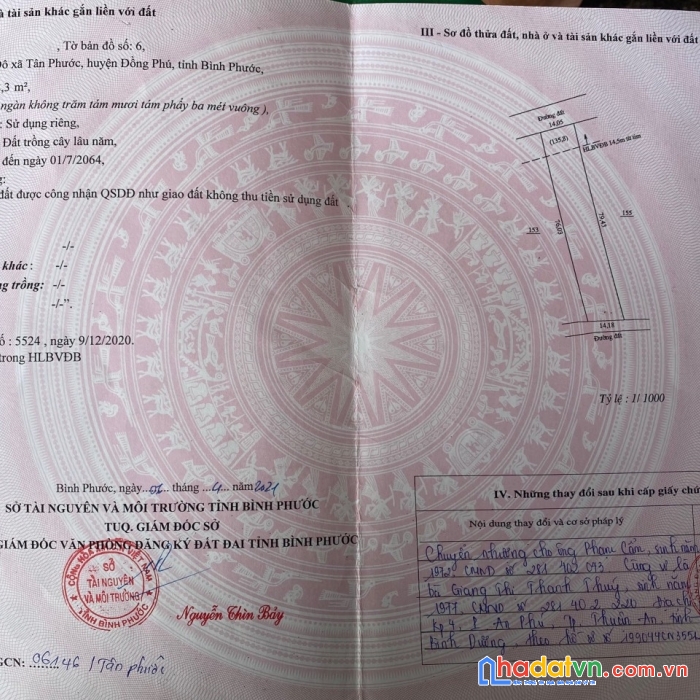 à tài sản khác gắn liền với đất
, Tờ bản đồ số: 6,
ộ xã Tân Phước, huyện Đồng Phú, tỉnh Bình Phước,
,3 m²,
ngàn không trăm tám mươi tám phẩy ba mét vuông ),
: Sử dụng riêng,
Đất trồng cây lâu năm,
đến ngày 01/7/2064,
g:
đất được công nhận QSDĐ như giao đất không thu tiền sử dụng đất
-/-
khác : -/-
ng trồng: -/-
-/-".
ố : 5524 , ngày 9/12/2020.
trong HLBVĐB
Bình Phước, ngày... tháng ...4... năm 2021
SỞ TÀI NGUYÊN VÀ MÔI TRƯỜNG TỈNH BÌNH PHƯỚC
TUQ. GIÁM ĐỐC SỞ
GIÁM ĐỐC VĂN PHÒNG ĐĂNG KÝ ĐẤT ĐAI TỈNH BÌNH PHƯỚC
SỞ
TÀI NGUYÊN
VÀ MÔI TRƯỜNG
TỈNH BÌNH PHƯỚC
Nguyễn Thìn Bảy
GCN: ...06146 / Tân phước
III - Sơ đồ thửa đất, nhà ở và tài sản khác gắn liền với đất
Đường đất
14,05
(135,8)
HLBVĐB 14,5m từ tim
153
76,03
79,43
155
14,18
Đường đất
Tỷ lệ : 1/ 1000
IV. Những thay đổi sau khi cấp giấy chứ
Nội dung thay đổi và cơ sở pháp lý
Chuyển nhượng cho ông Phạm Cấm, sinh năm
1972 CMND số 281 402 093 Cùng vợ là
bà Giang Thị Thanh Thuỷ, sinh năm
1977, CMND số 281 402 220 Địa chỉ
Kp 4, P An Phú, Tp Thuận An, tỉnh
Bình Dương, theo hồ sơ số 199044CN3556
nhadatvn.com.vn